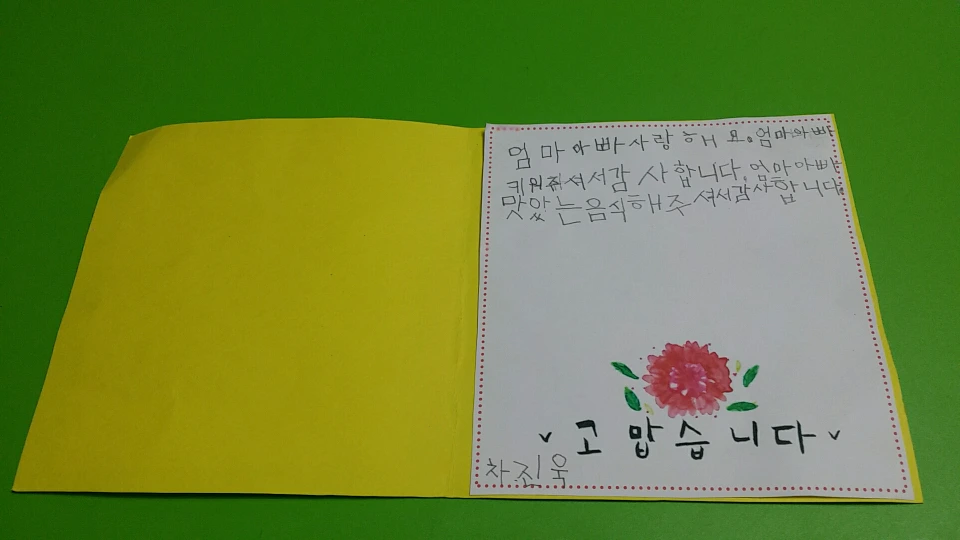 엄마아빠사랑해요. 엄마아빠
키워줘셔서감사합니다. 엄마아빠
맛았는음식해주셔서감사합니다
고맙습니다
차진욱